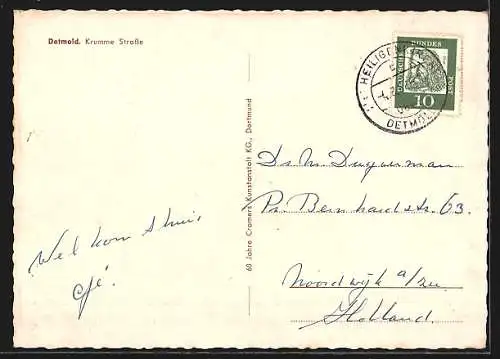 Detmold. Krumme Straße
HEILIGEN
DETMOLD
DEUTSCHE BUNDES POST
10
60 Jahre Cramers Kunstanstalt KG., Dortmund
Ds. M. Duyverman
Pr. Bernhardstr. 63.
Noordwijk a/zee
Holland.
Welkom thuis